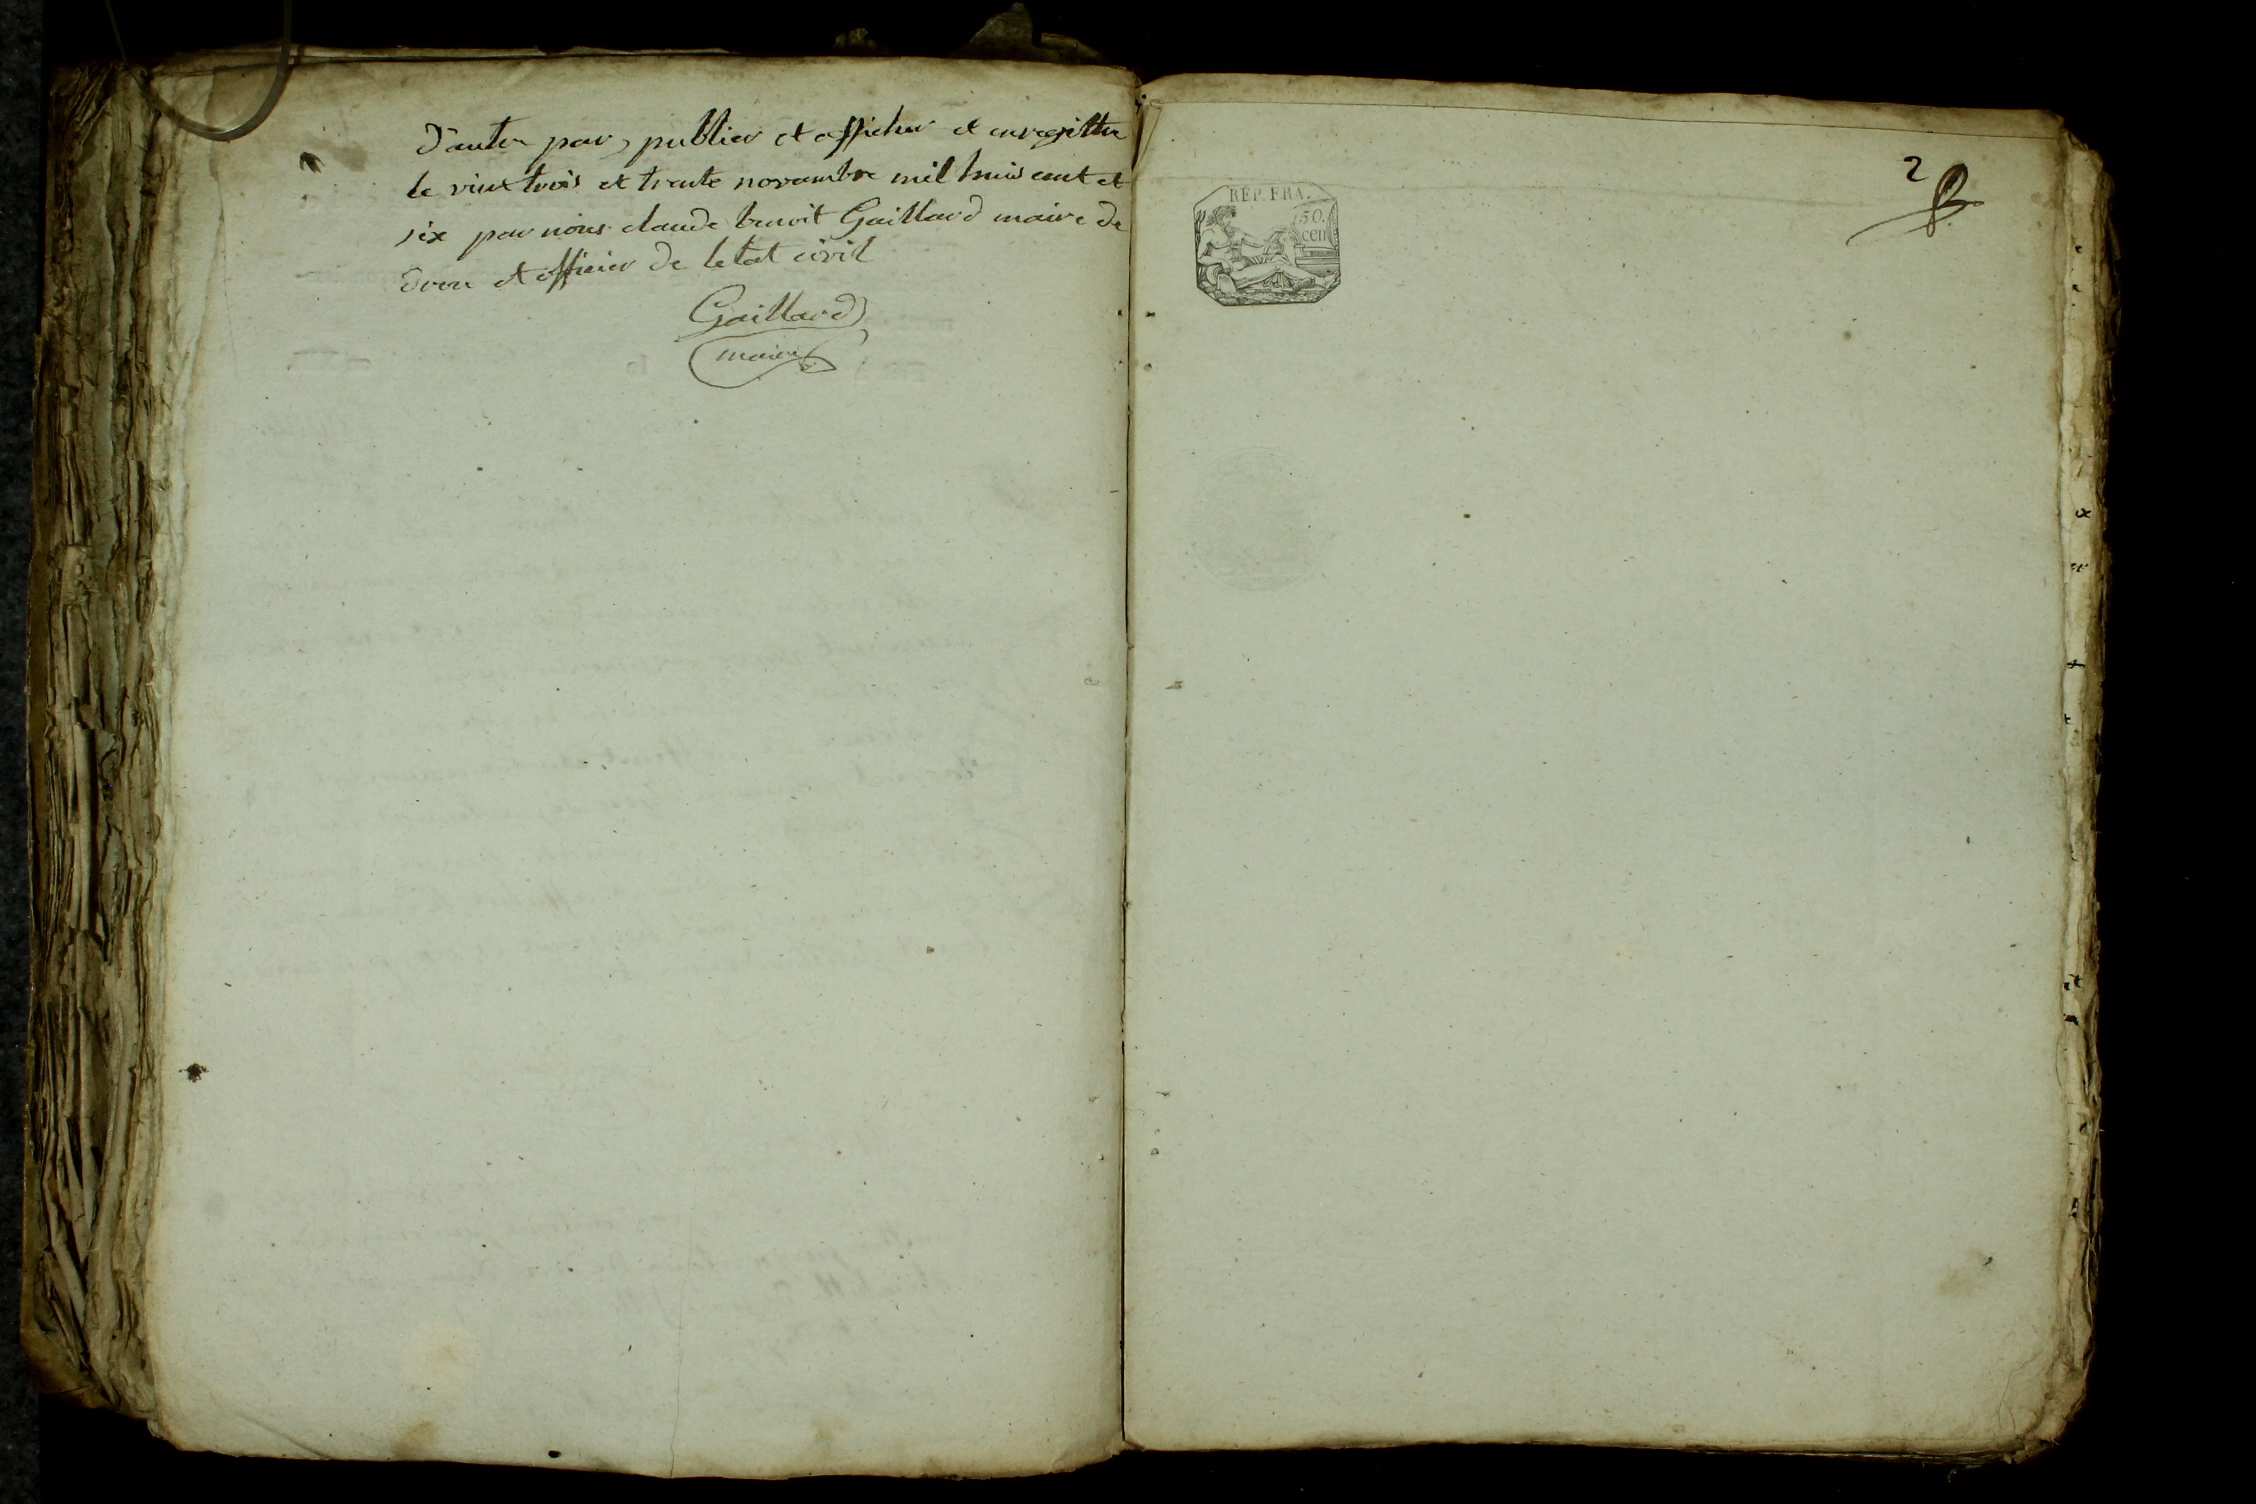 D'autre par, publier et afficher et enregistre
le vint trois et trente novembre mil huis cent et
six par nous claude benoit Gaillard maire de
et officier de letat civil
Gaillard
maire
REP. FRA.
50.
cen
2